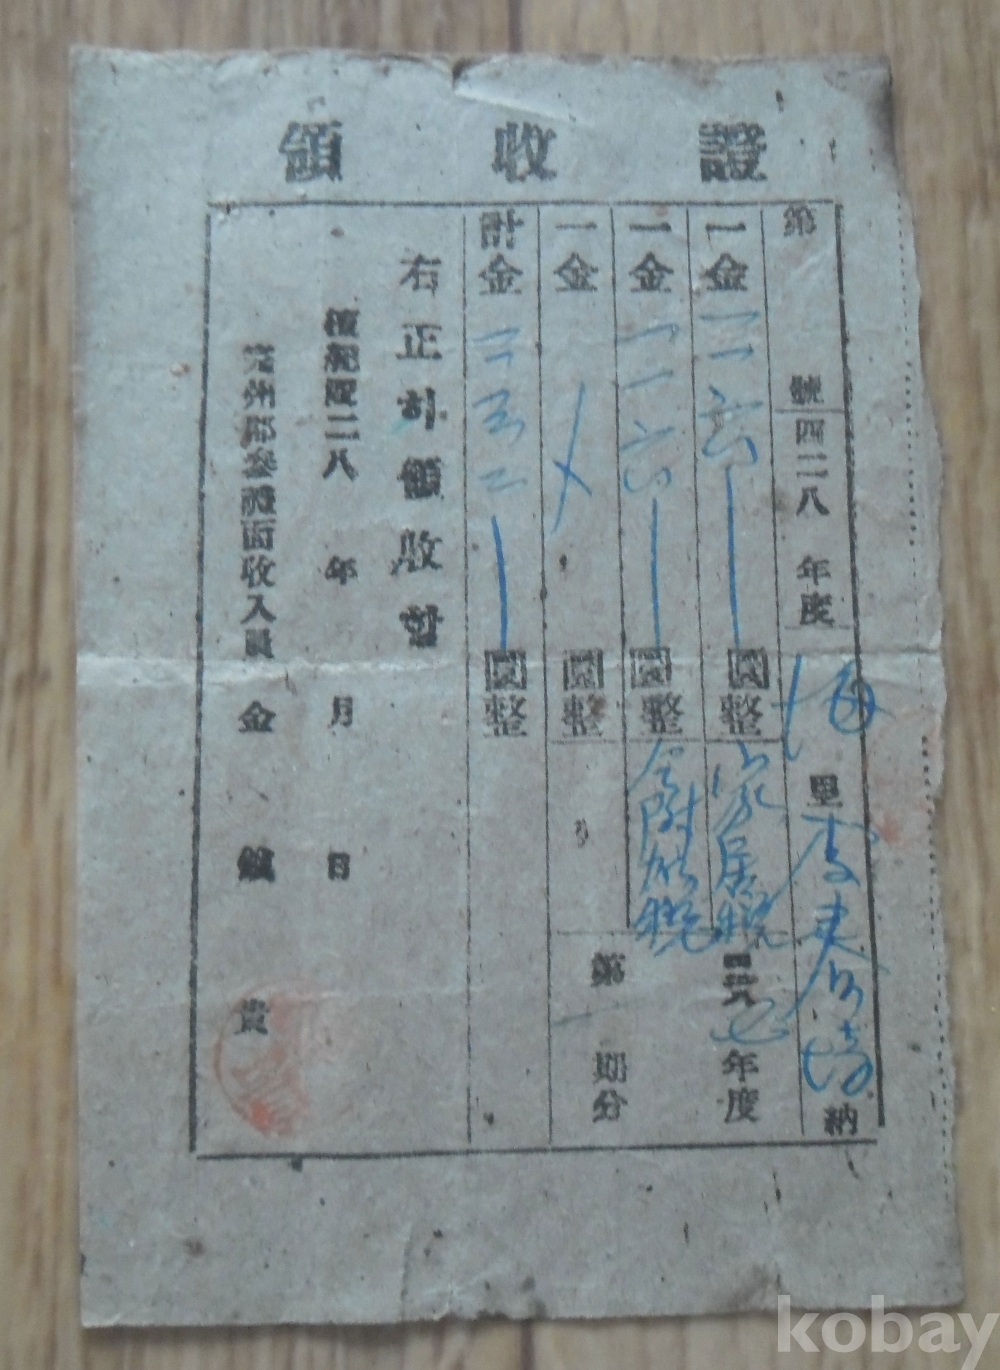 領收證
第 號 四二八 年度 里 納
一金一一六 圓整 家屋稅 四二八 年度
一金一一六 圓整 附加稅
一金 圓整 第一期分
計金二三二 圓整
右正히領收함
檀紀四二八 年 月 日
完州郡參禮面收入員 金 鎭 貴
kobay